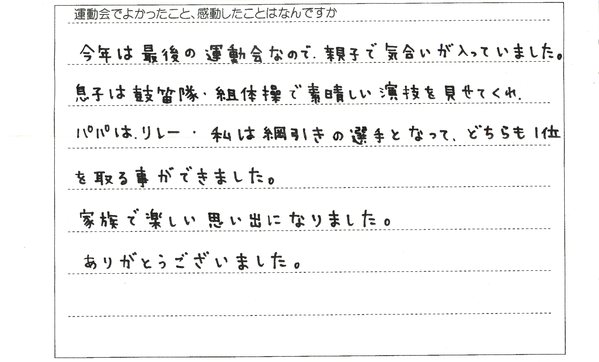 運動会でよかったこと、感動したことはなんですか
今年は最後の運動会なので、親子で気合いが入っていました。
息子は鼓笛隊・組体操で素晴しい演技を見せてくれ、
パパは、リレー・私は綱引きの選手となって、どちらも1位
を取る事ができました。
家族で楽しい思い出になりました。
ありがとうございました。